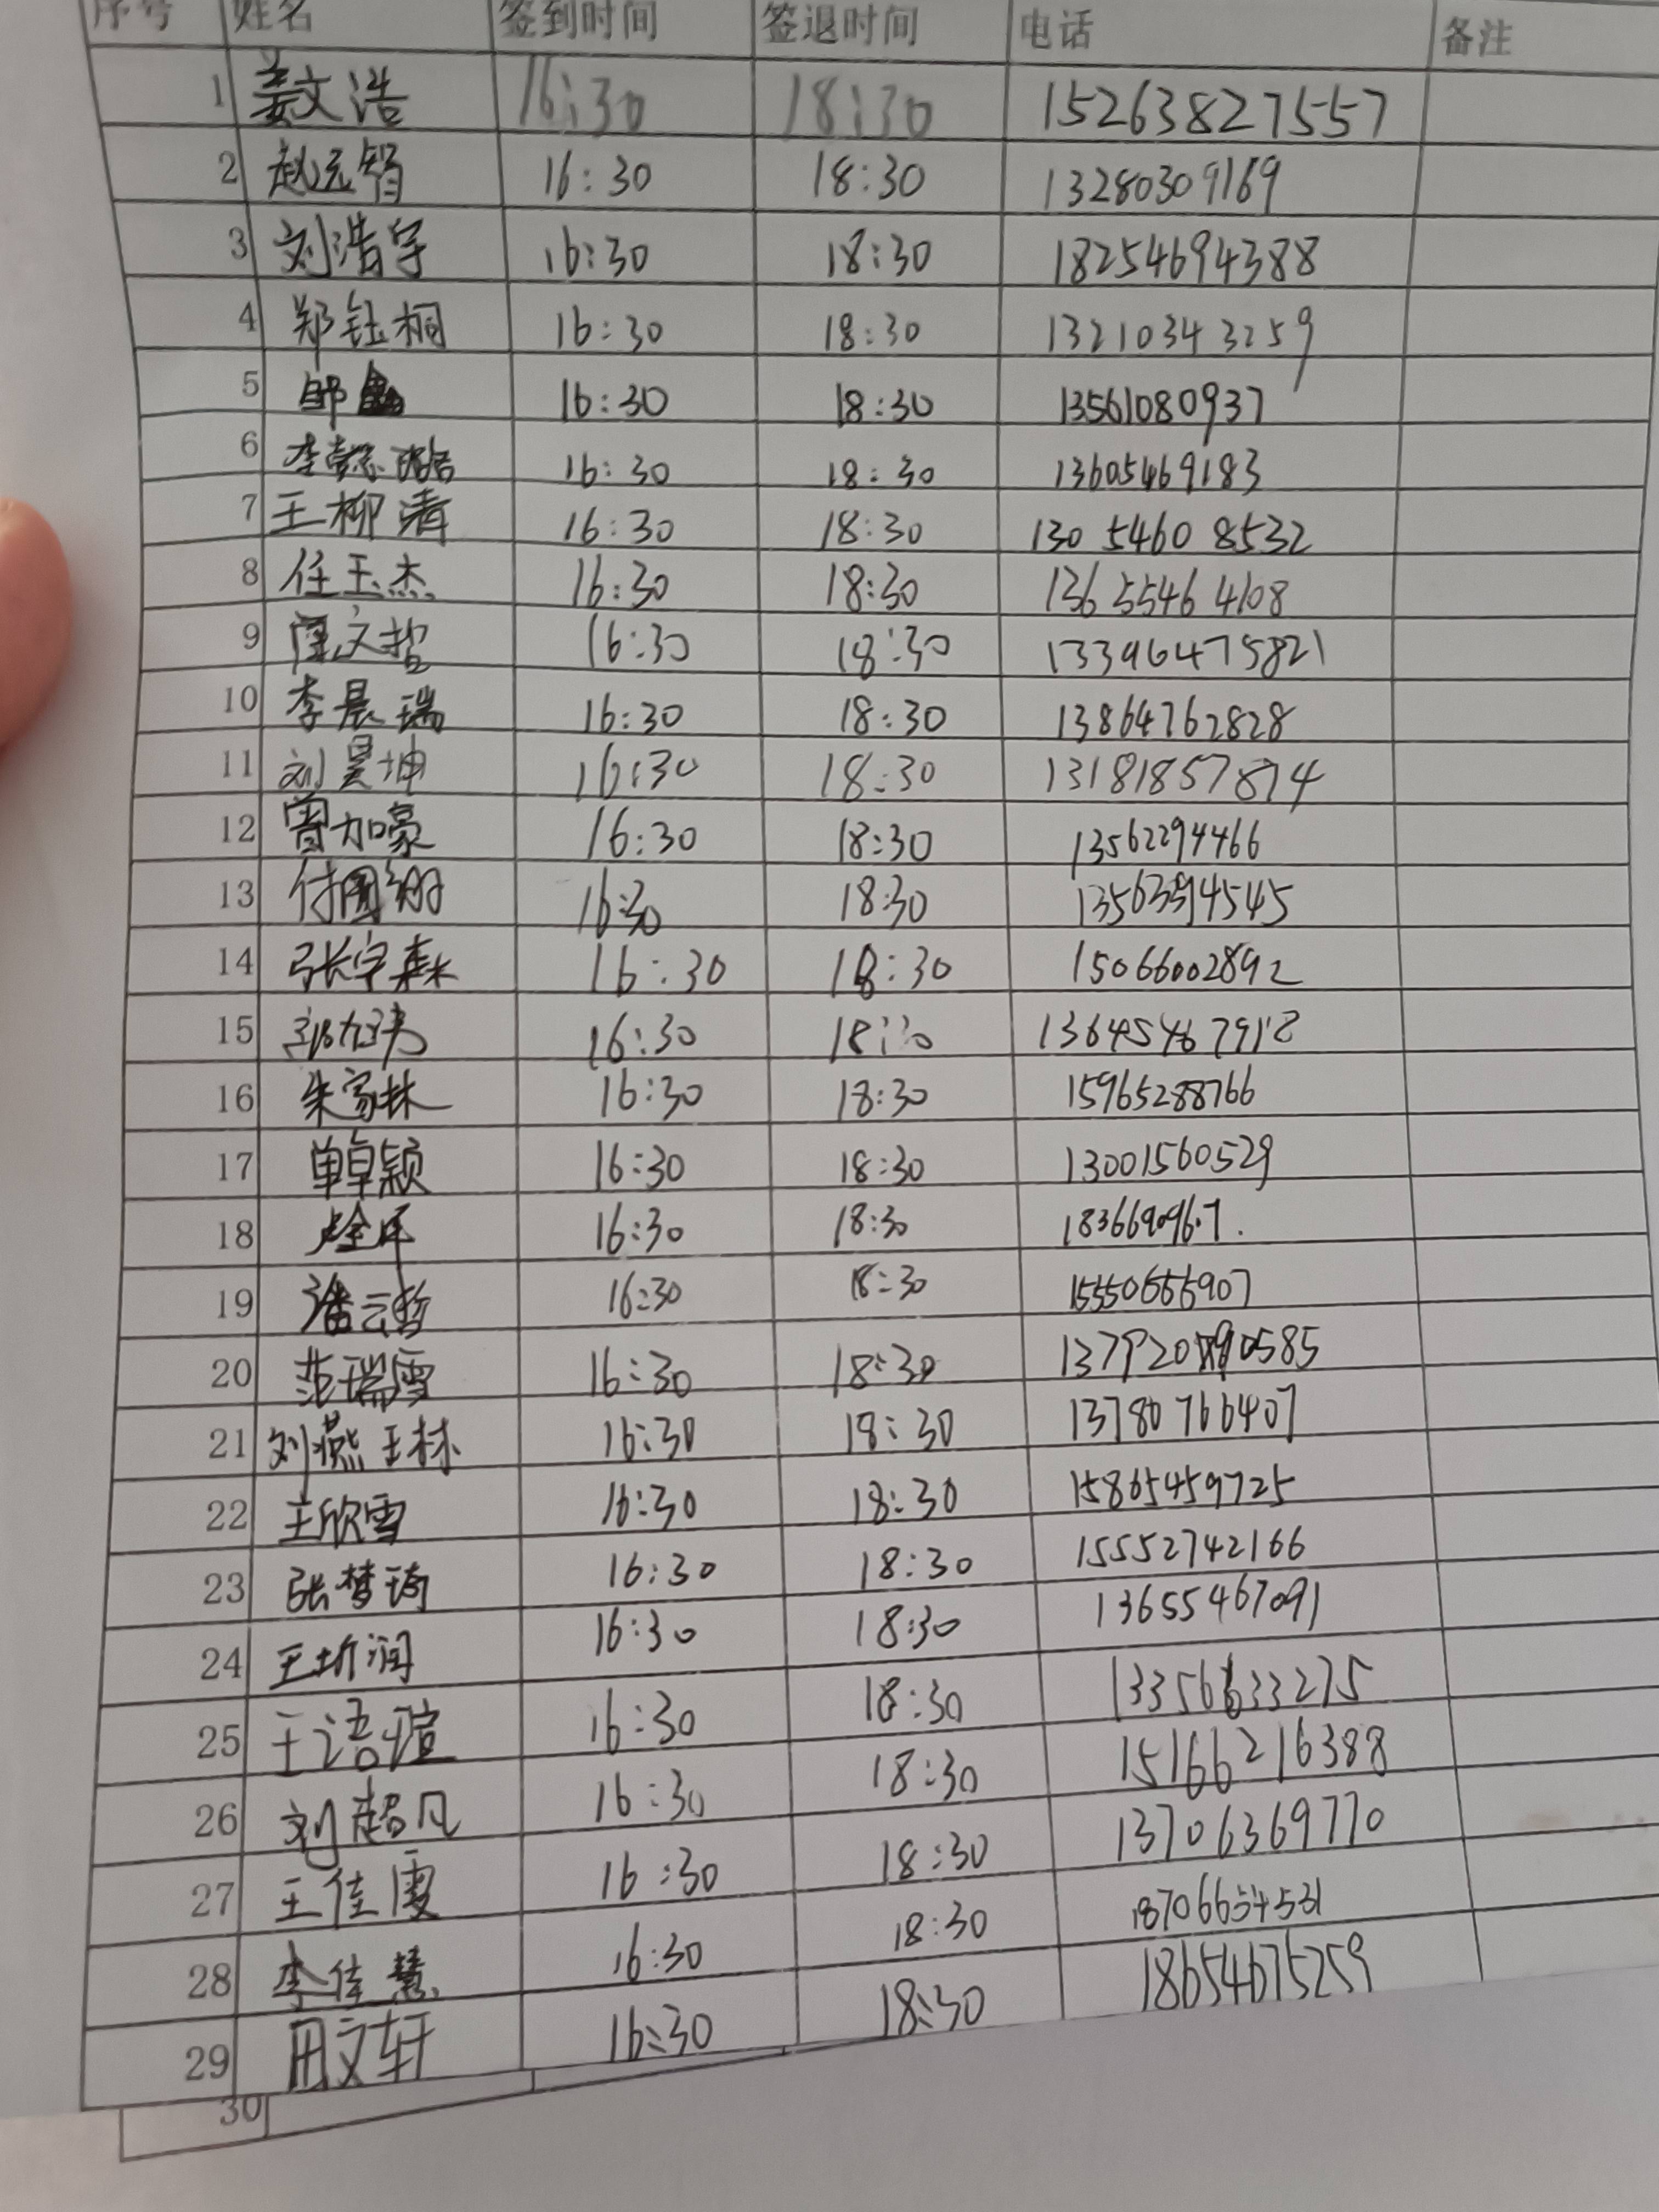 序号 姓名 签到时间 签退时间 电话 备注
1 姜文浩 16:30 18:30 15263827557
2 赵元智 16:30 18:30 13280309169
3 刘浩宇 16:30 18:30 18254694388
4 郑钰桐 16:30 18:30 13210343259
5 16:30 18:30 13561080937
6 李懿璐 16:30 18:30 13605469183
7 王柳清 16:30 18:30 130 5460 8532
8 任玉杰 16:30 18:30 136 5546 4108
9 文哲 16:30 18:30 133964475821
10 李晨瑞 16:30 18:30 13864762828
11 刘昊坤 16:30 18:30 13181857874
12 曾加豪 16:30 18:30 13562294466
13 16:30 18:30 13563394545
14 张宇森 16:30 18:30 15066002892
15 16:30 18:30
16 朱家林 16:30 18:30 15965288766
17 单卓颖 16:30 18:30 13001560529
18 16:30 18:30
19 潘云哲 16:30 18:30 15550656907
20 范瑞雪 16:30 18:30
21 刘燕琳 16:30 18:30 13780766407
22 王欣雪 16:30 18:30 15865459725
23 张梦琦 16:30 18:30 15552742166
24 16:30 18:30 13655467091
25 王语瑄 16:30 18:30 13356633275
26 刘超凡 16:30 18:30 15166216388
27 王佳雯 16:30 18:30 13706369770
28 李佳慧 16:30 18:30 18706654531
29 田文轩 16:30 18:30 18654675259
30